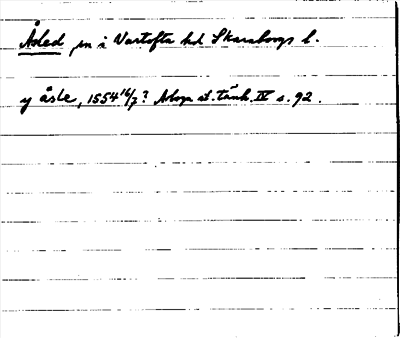 Åsled sn i Vartofta hd Skaraborgs l.
y åsle, 1554 16/7? Aboga st. tänk. IV s. 92.